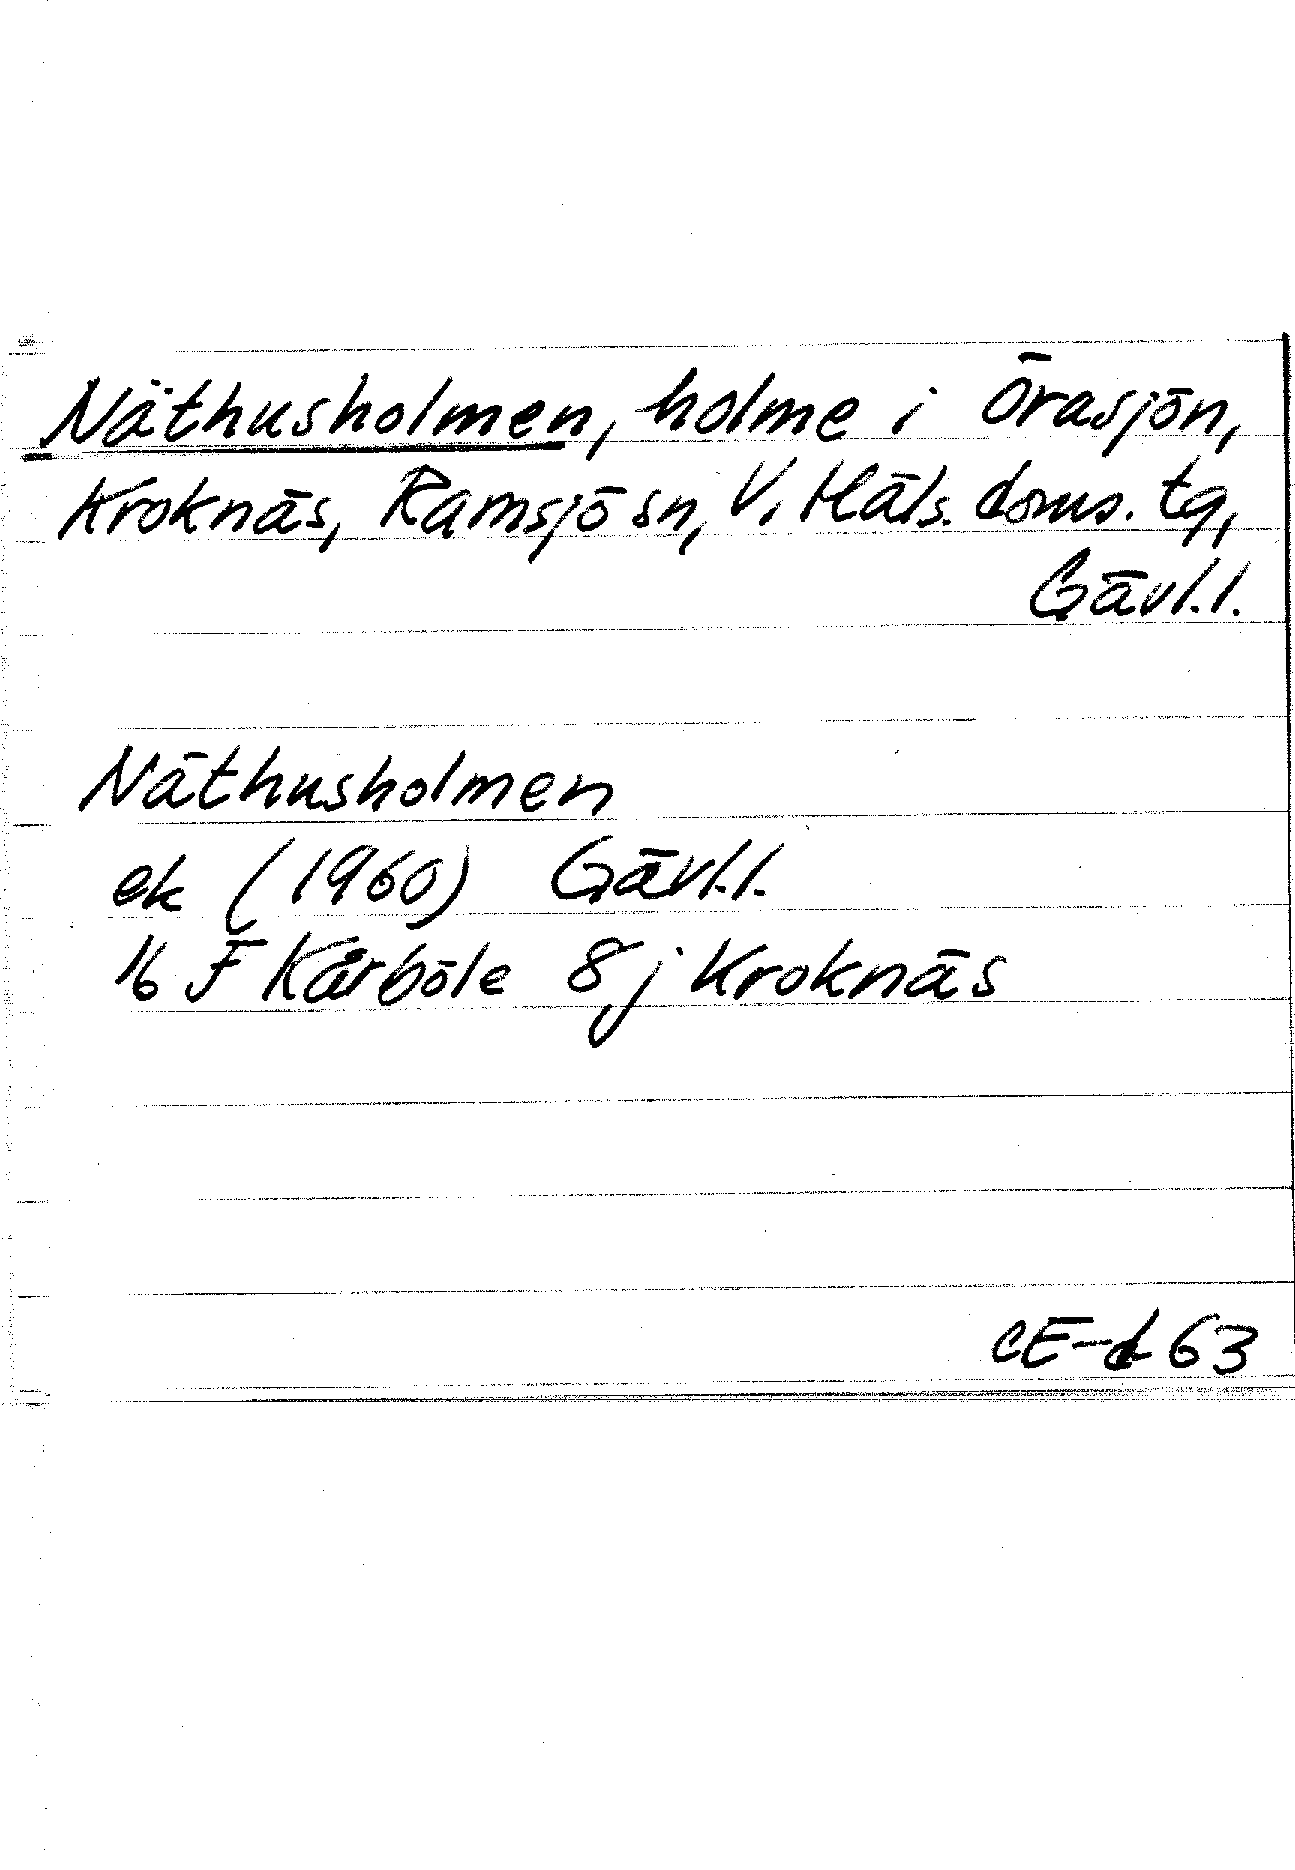 Näthusholmen, holme i Örasjön,
Kroknäs, Ramsjö sn, V. Häls. doms. tg,
Gävl.l.
Näthusholmen
ek (1960) Gävl.l.
16 F Kårböle 8j Kroknäs
CE-d 63